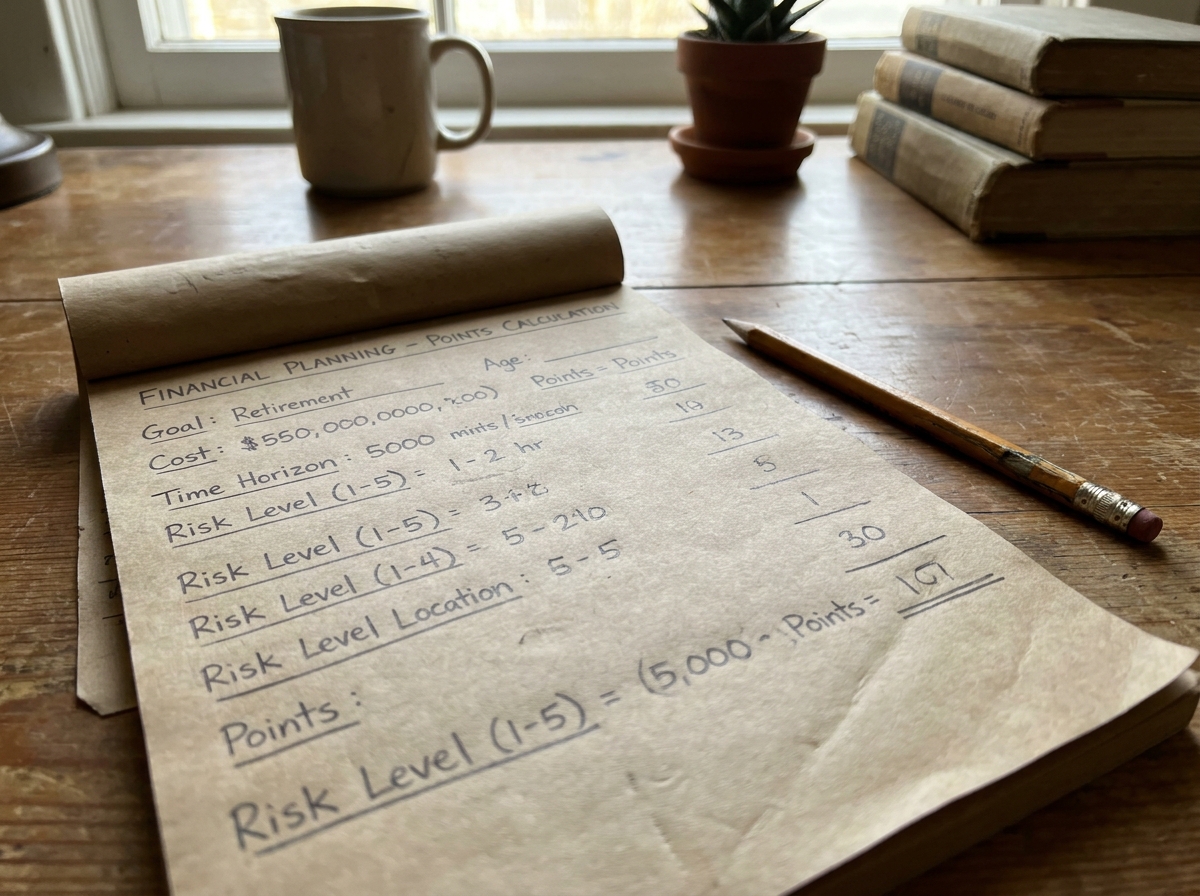 FINANCIAL PLANNING – POINTS CALCULATION
Goal: Retirement Age:
Cost: $550,000,0000, Points = Points
Time Horizon: 5000
Risk Level (1-5) = 1-2 hr 10
Risk Level (1-5) = 13
Risk Level (1-4) = 5-210 5
Risk Level Location: 5-5 1
30
Points:
Risk Level (1-5) = (5,000 - Points =